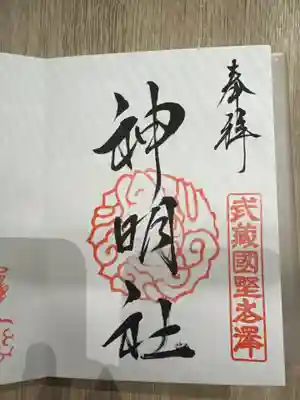 奉拝
武蔵國野大澤
神明社